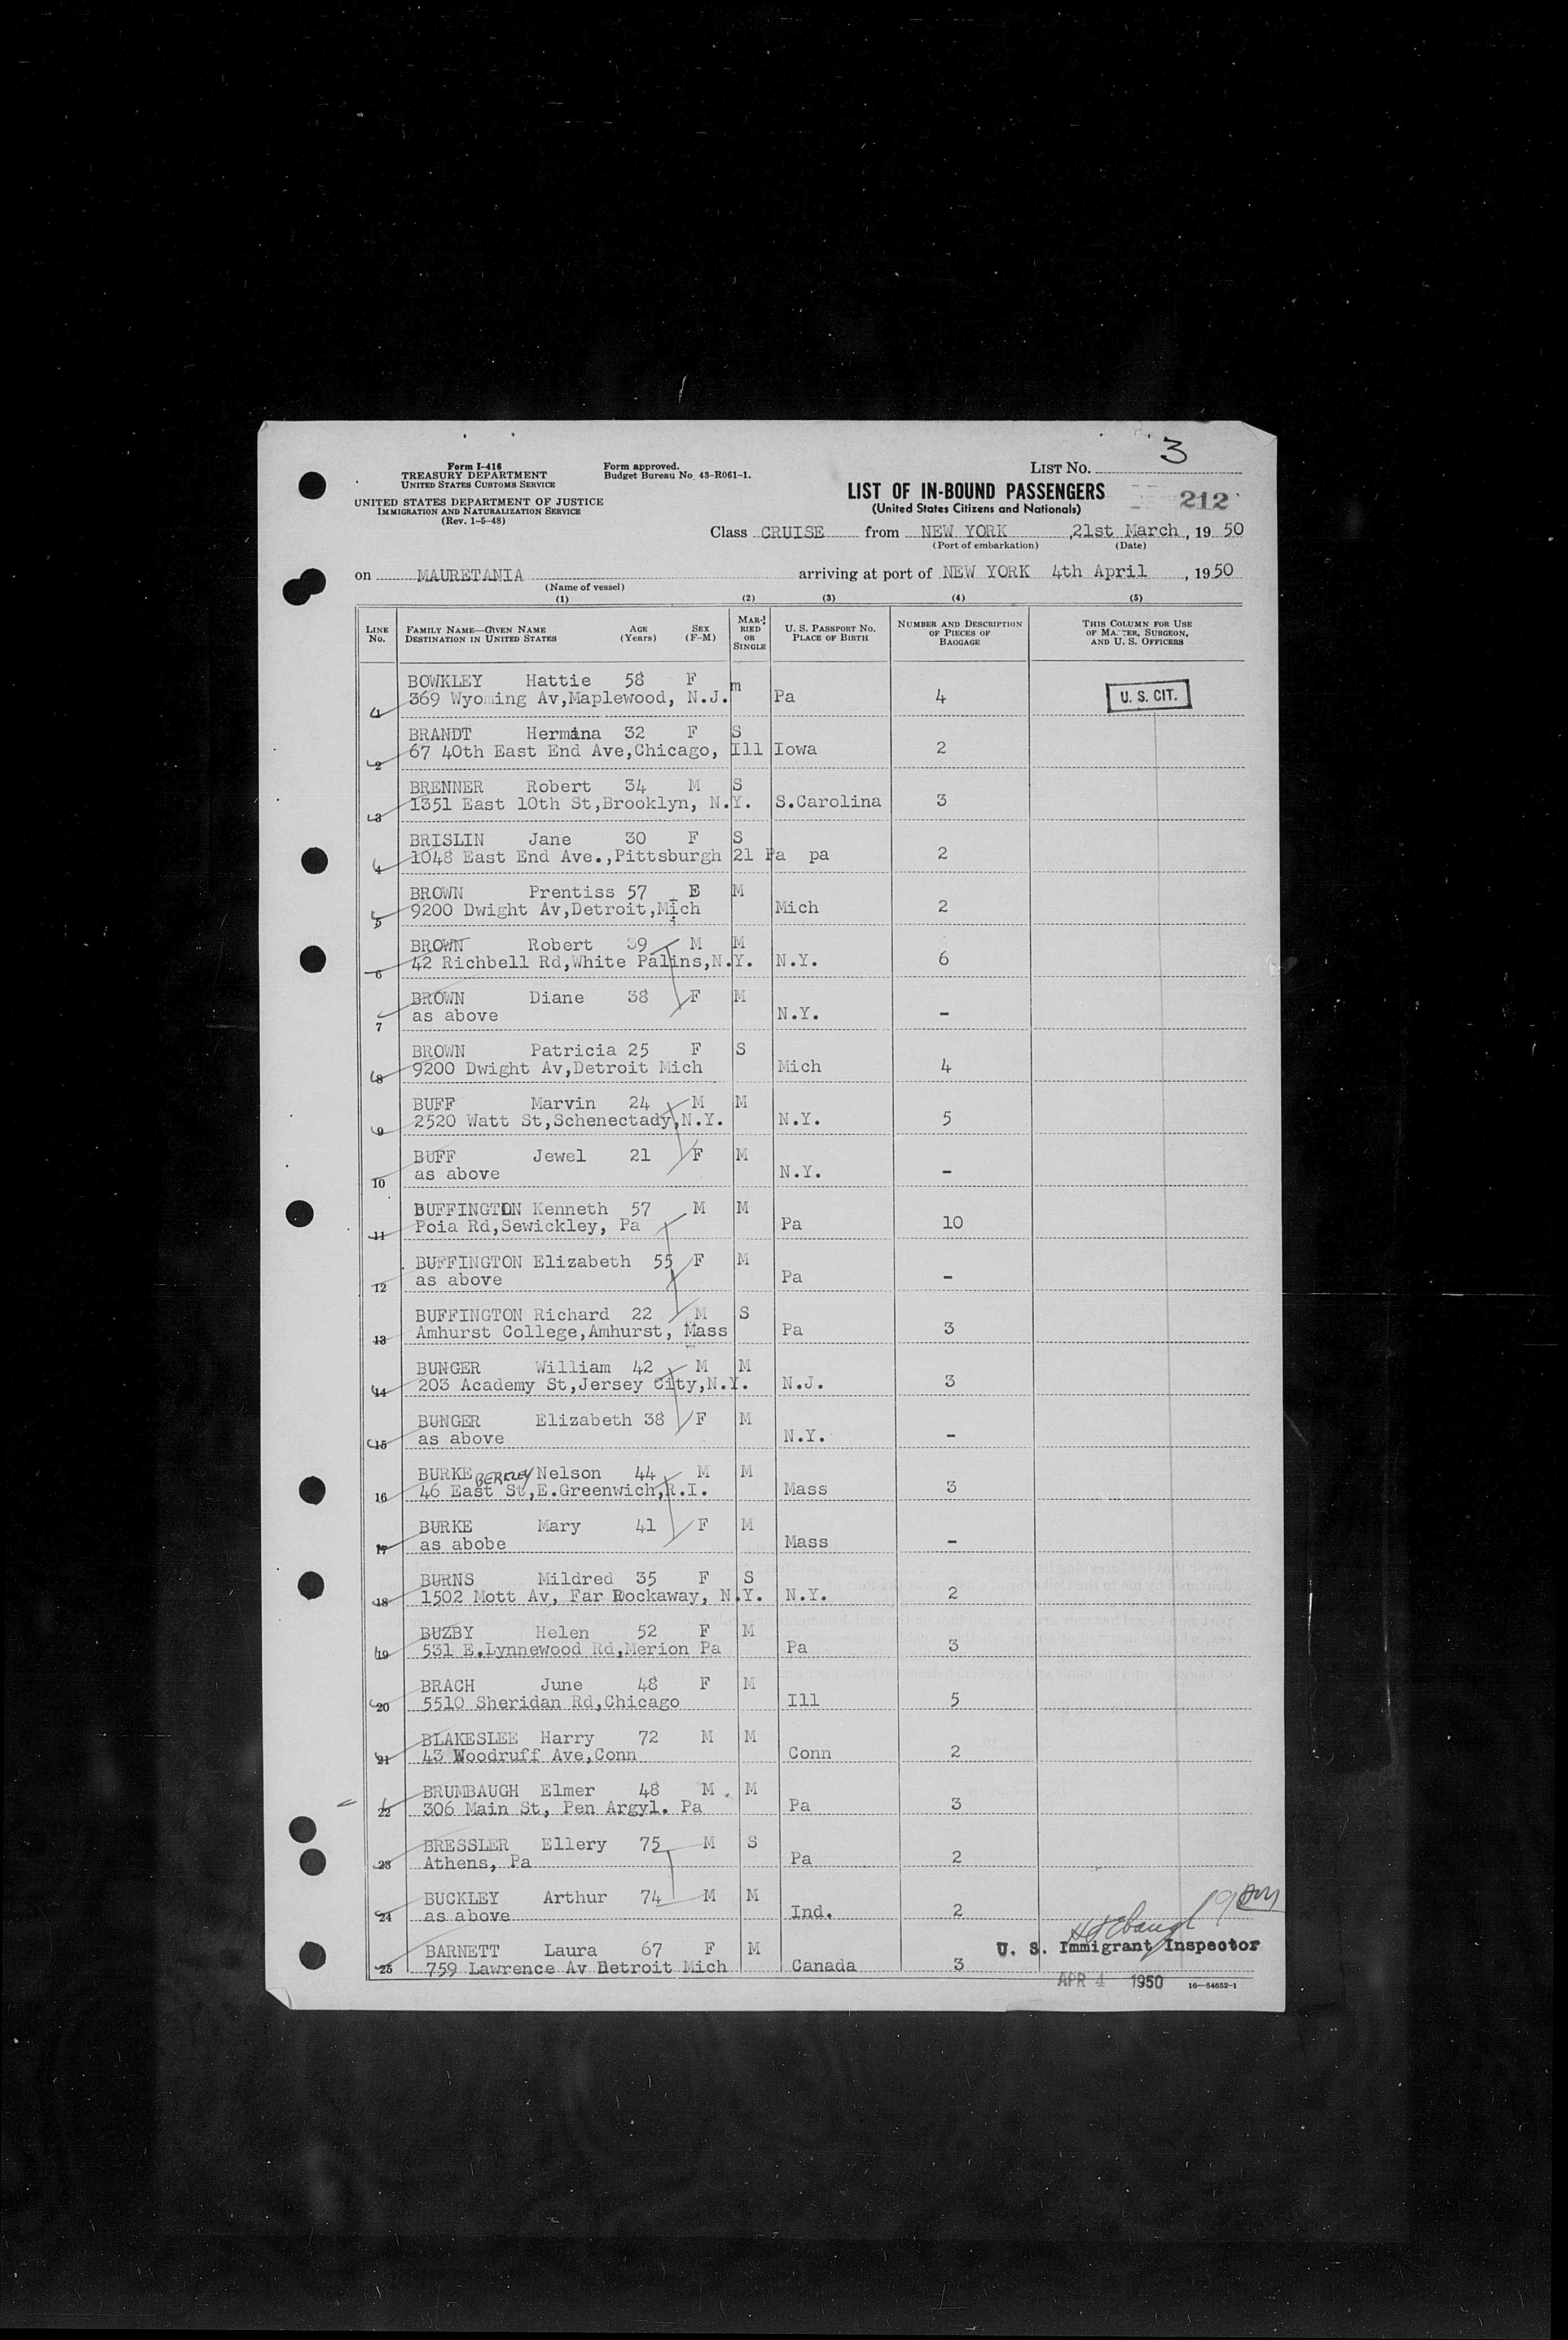 3
Form I-416
TREASURY DEPARTMENT
UNITED STATES CUSTOMS SERVICE
UNITED STATES DEPARTMENT OF JUSTICE
IMMIGRATION AND NATURALIZATION SERVICE
(Rev. 1-5-48)
Form approved.
Budget Bureau No. 43-R061-1.
LIST NO.
LIST OF IN-BOUND PASSENGERS
(United States Citizens and Nationals)
212
Class CRUISE from NEW YORK ,21st March, 19 50
(Port of embarkation) (Date)
on MAURETANIA arriving at port of NEW YORK 4th April , 1950
(Name of vessel)
(1) (2) (3) (4) (5)
LINE NO. FAMILY NAME—GIVEN NAME DESTINATION IN UNITED STATES AGE (Years) SEX (F-M) MARRIED OR SINGLE U. S. PASSPORT NO. PLACE OF BIRTH NUMBER AND DESCRIPTION OF PIECES OF BAGGAGE THIS COLUMN FOR USE OF MASTER, SURGEON, AND U. S. OFFICERS
BOWKLEY Hattie 58 F m
1 369 Wyoming Av,Maplewood, N.J. Pa 4 U. S. CIT.
BRANDT Hermina 32 F S
2 67 40th East End Ave,Chicago, Ill Iowa 2
BRENNER Robert 34 M S
3 1351 East 10th St,Brooklyn, N.Y. S.Carolina 3
BRISLIN Jane 30 F S
4 1048 East End Ave.,Pittsburgh 21 Pa pa 2
BROWN Prentiss 57 E M
5 9200 Dwight Av,Detroit,Mich Mich 2
BROWN Robert 39 M M
6 42 Richbell Rd,White Palins,N.Y. N.Y. 6
BROWN Diane 38 F M
7 as above N.Y. -
BROWN Patricia 25 F S
8 9200 Dwight Av,Detroit Mich Mich 4
BUFF Marvin 24 M M
9 2520 Watt St,Schenectady,N.Y. N.Y. 5
BUFF Jewel 21 F M
10 as above N.Y. -
BUFFINGTON Kenneth 57 M M
11 Poia Rd,Sewickley, Pa Pa 10
BUFFINGTON Elizabeth 55 F M
12 as above Pa -
BUFFINGTON Richard 22 M S
13 Amhurst College,Amhurst, Mass Pa 3
BUNGER William 42 M M
14 203 Academy St,Jersey City,N.Y. N.J. 3
BUNGER Elizabeth 38 F M
15 as above N.Y. -
BURKE BERKLEY Nelson 44 M M
16 46 East St,E.Greenwich,R.I. Mass 3
BURKE Mary 41 F M
17 as abobe Mass -
BURNS Mildred 35 F S
18 1502 Mott Av, Far Rockaway, N.Y. N.Y. 2
BUZBY Helen 52 F M
19 531 E.Lynnewood Rd,Merion Pa Pa 3
BRACH June 48 F M
20 5510 Sheridan Rd,Chicago Ill 5
BLAKESLEE Harry 72 M M
21 43 Woodruff Ave,Conn Conn 2
BRUMBAUGH Elmer 48 M M
22 306 Main St, Pen Argyl. Pa Pa 3
BRESSLER Ellery 75 M S
23 Athens, Pa Pa 2
BUCKLEY Arthur 74 M M
24 as above Ind. 2
BARNETT Laura 67 F M
U. S. Immigrant Inspector
25 759 Lawrence Av Detroit Mich Canada 3
APR 4 1950 16—54652-1